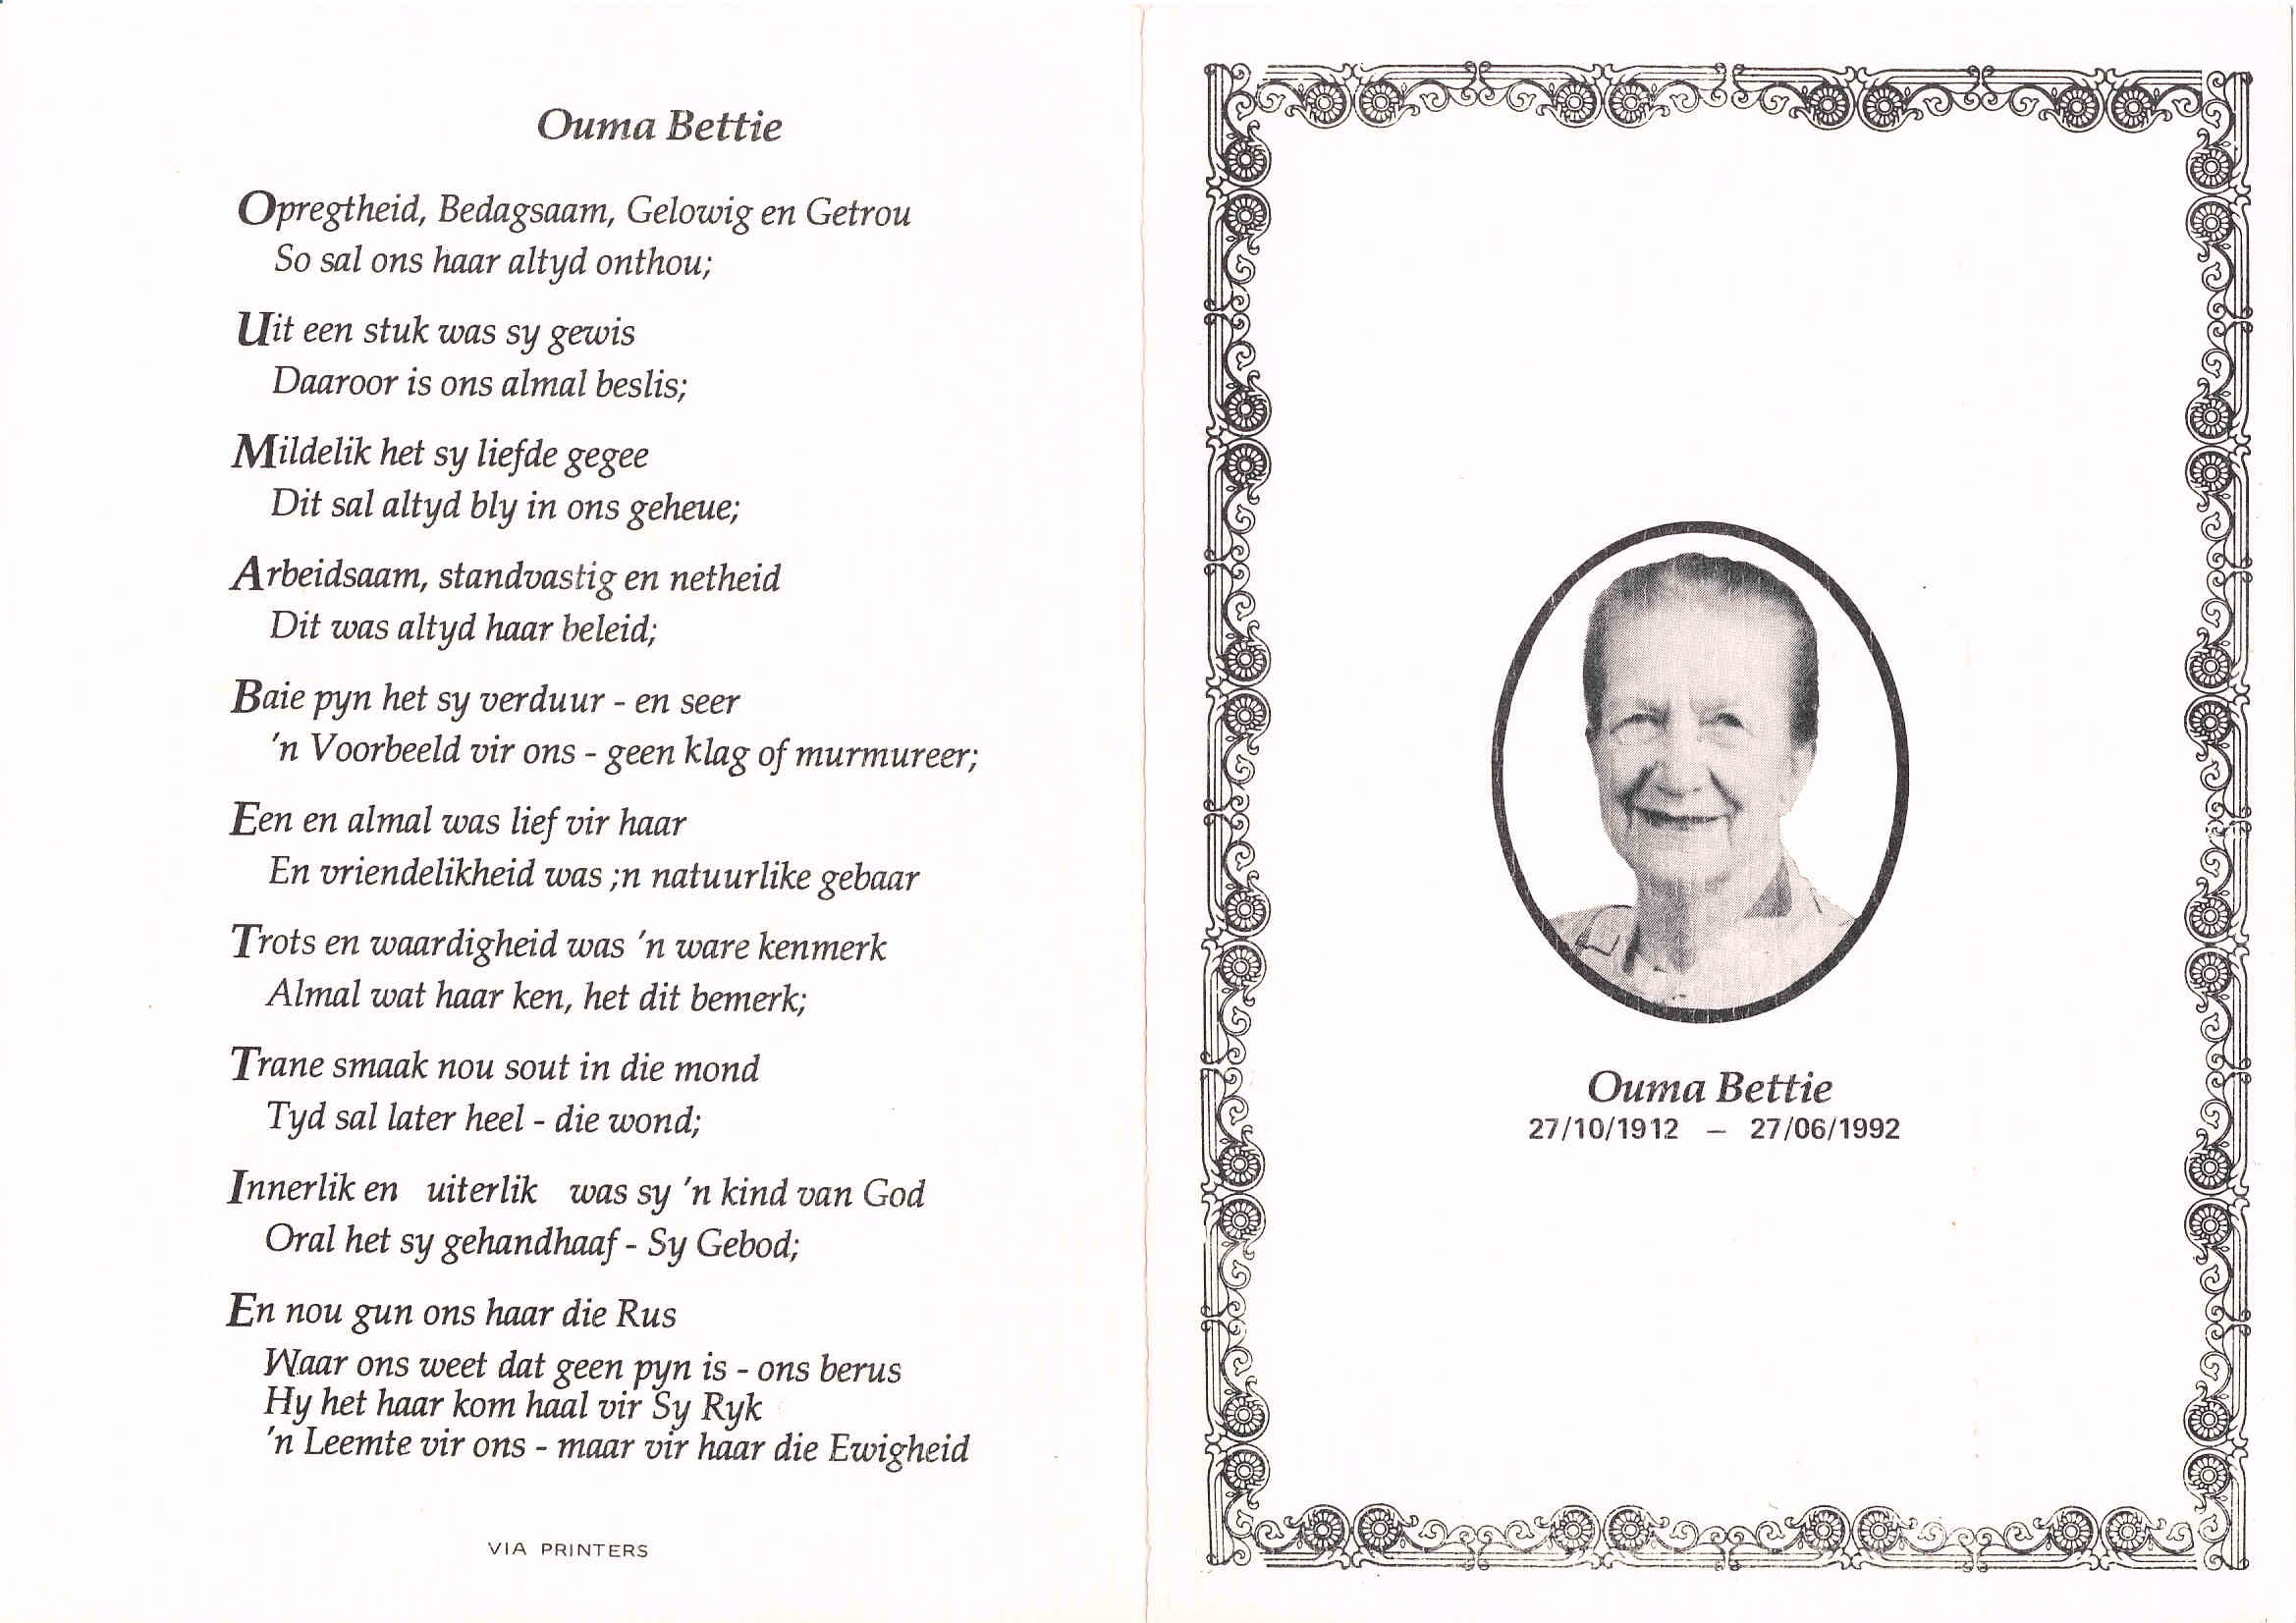 Ouma Bettie
Opregtheid, Bedagsaam, Gelowig en Getrou
So sal ons haar altyd onthou;
Uit een stuk was sy gewis
Daaroor is ons almal beslis;
Mildelik het sy liefde gegee
Dit sal altyd bly in ons geheue;
Arbeidsaam, standvastig en netheid
Dit was altyd haar beleid;
Baie pyn het sy verduur - en seer
'n Voorbeeld vir ons - geen klag of murmureer;
Een en almal was lief vir haar
En vriendelikheid was ;n natuurlike gebaar
Trots en waardigheid was 'n ware kenmerk
Almal wat haar ken, het dit bemerk;
Trane smaak nou sout in die mond
Tyd sal later heel - die wond;
Innerlik en uiterlik was sy 'n kind van God
Oral het sy gehandhaaf - Sy Gebod;
En nou gun ons haar die Rus
Waar ons weet dat geen pyn is - ons berus
Hy het haar kom haal vir Sy Ryk
'n Leemte vir ons - maar vir haar die Ewigheid
VIA PRINTERS
Ouma Bettie
27/10/1912 — 27/06/1992